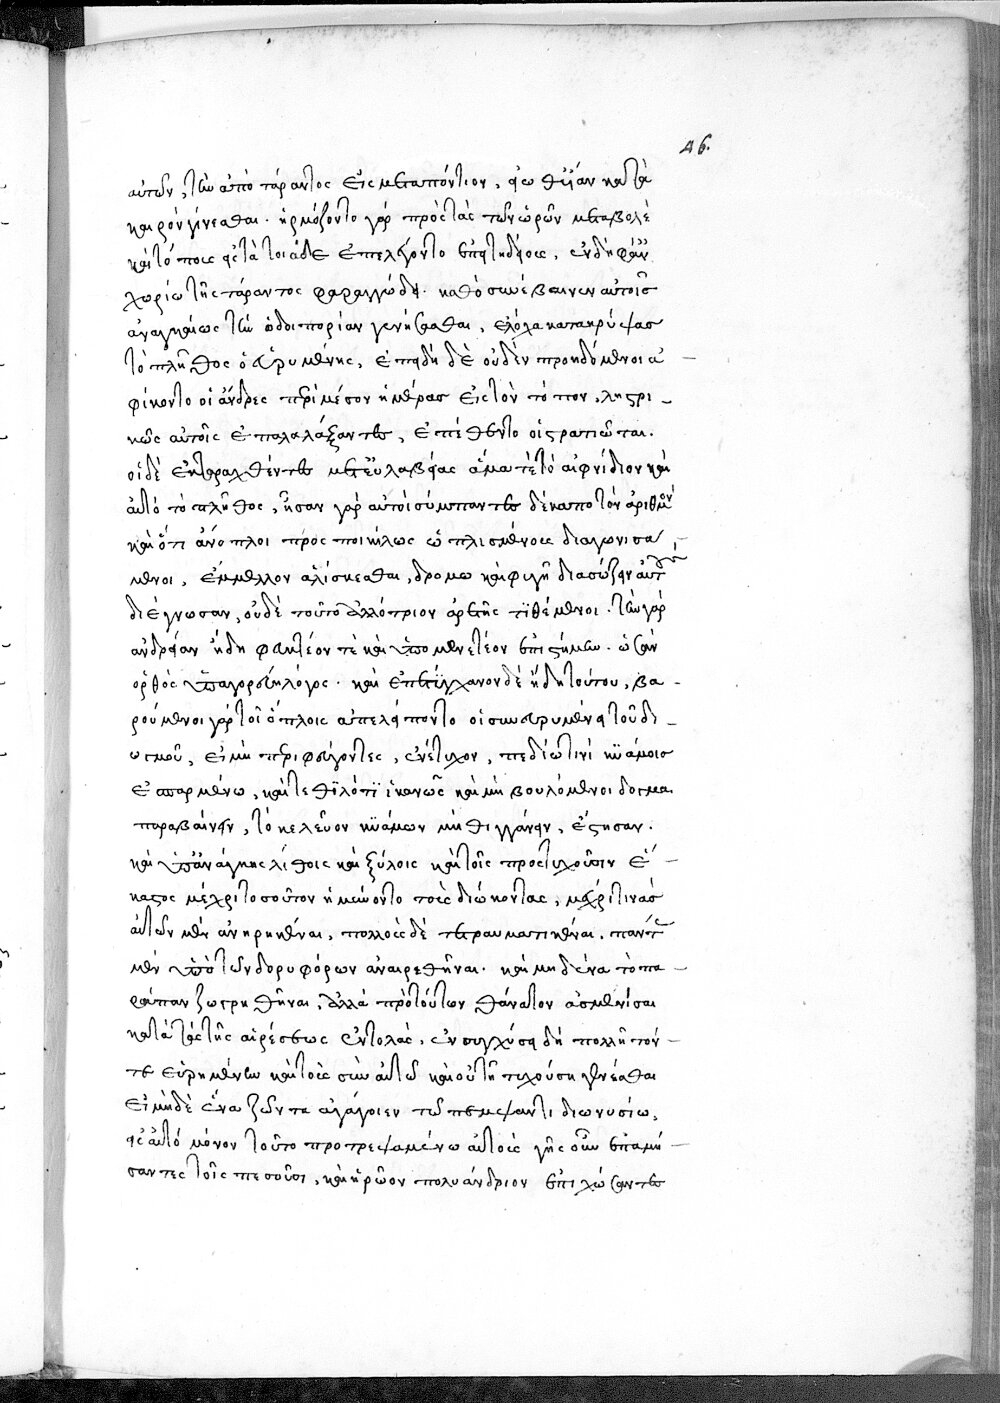 αὐτῶν, τὴν ἀπὸ τάραντος εἰς μεταπόντιον, εἰωθυῖαν κατὰ
καιρὸν γίνεσθαι· ἡρμόζοντο γὰρ πρὸς τὰς τῶν ὡρῶν μεταβολὰς
καὶ τόπους εἰς τὰ τοιάδε ἐπελέγοντο ἐπιτηδείους, ἐν δὴ φάναις
χωρίω τῆς τάραντος φαραγγώδει· καθὸ συνέβαινεν αὐτοῖς
ἀναγκαίως τὴν ὁδοιπορίαν γενήσεσθαι, ἐλόχα κατακρύψας
τὸ πλῆθος ὁ εὐρυμένης, ἐπειδὴ δὲ οὐδὲν προηδόμενοι ἀ-
φίκοντο οἱ ἄνδρες περὶ μέσον ἡμέρας εἰς τὸν τόπον, ληστρι-
κῶς αὐτοῖς ἐπαλαλάξαντες, ἐπέθεντο οἱ στρατιῶται.
οἱ δὲ ἐκταραχθέντες μετ' εὐλαβείας ἅμα τὲ τὸ αἰφνίδιον καὶ
αὐτὸ τὸ πλῆθος, ἦσαν γὰρ αὐτοὶ σύμπαντες δέκα που τὸν ἀριθμὸν
καὶ ὅτι ἄνοπλοι πρὸς ποικίλως ὡπλισμένους διαγωνισά-
μενοι, ἔμμελλον ἁλίσκεσθαι, δρομω καὶ φυγῆ διασώζειν αὐτοὺς
διέγνωσαν, οὐδὲ τοῦτο ἀλλότριον ἀρετῆς τιθέμενοι· τὴν γὰρ
ἀνδρείαν ἤδη φευκτέον τὲ καὶ ὑπομενετέον ἐπιστήμην· ὡς ἂν
ὀρθὸς ὑπαγορεύη λόγος· καὶ ἐπετύγχανον δὲ ἤδη τούτου, βα-
ρούμενοι γὰρ τοῖς ὅπλοις ἀπελείποντο οἱ σὺν εὐρυμένη τοῦ δι-
ωγμοῦ, εἰ μὴ περιφεύγοντες, ἐνέτυχον, πεδίω τινὶ κυάμοις
ἐσπαρμένω, καὶ τεθηλότι ἱκανῶς καὶ μὴ βουλόμενοι δόγμα
παραβαίνειν, τὸ κελεῦον κυάμων μὴ θιγγάνειν, ἔστησαν.
καὶ ὑπ' ἀνάγκης λίθοις καὶ ξύλοις καὶ τοῖς προστυχοῦσιν ἕ-
καστος μέχρι τοσοῦτον ἠμύνοντο τοὺς διώκοντας, μέχρι τινὰς
αὐτῶν μὲν ἀνηρηκέναι, πολλοὺς δὲ τετραυματικέναι. πάντας
μὲν ὑπὸ τῶν δορυφόρων ἀναιρεθῆναι. καὶ μηδένα τὸ πα-
ράπαν ζωγρηθῆναι, ἀλλὰ πρὸ τούτων θάνατον ἀσμενίσαι
κατὰ τὰς τῆς αἱρέσεως ἐντολὰς, ἐν συγχύσει δὴ πολλῆ τόν-
τε εὐρημένην καὶ τοὺς σὺν αὐτῶ καὶ οὐ τῆ τυχούση γενέσθαι
εἰ μηδὲ ἕνα ζῶντα ἀγάγοιεν τῶ πεμψαντι διονυσίω,
εἰς αὐτὸ μόνον τοῦτο προτρεψαμένω αὐτοὺς γῆς οὖν ἐπαμή-
σαντες τοῖς πεσοῦσι, καὶ ἡρῶον πολυάνδριον ἐπιχώσαντες